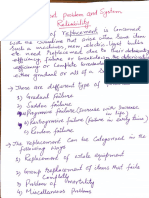 Problem and System
Reliability
of Replacement is concerned
with the situation that arise when some item
such as machines, men, electric light bulbs
etc. need replacement due to their deteriority
efficiency, failure or breakdown the deteriorate
efficiency or complete breakdown is
either gradual or all of a
→ There are different type of
1) Gradual failure
2) Sudden failure
Progressive failure (Increase with increase in life)
Retrogressive failure (failure in early life)
Random failure
→ The replacement can be categorised in the
following steps
1) Replacement of whole equipment
2) Group replacement of items that fails
completely
3) Problem of mortality
4) Miscellaneous Problem